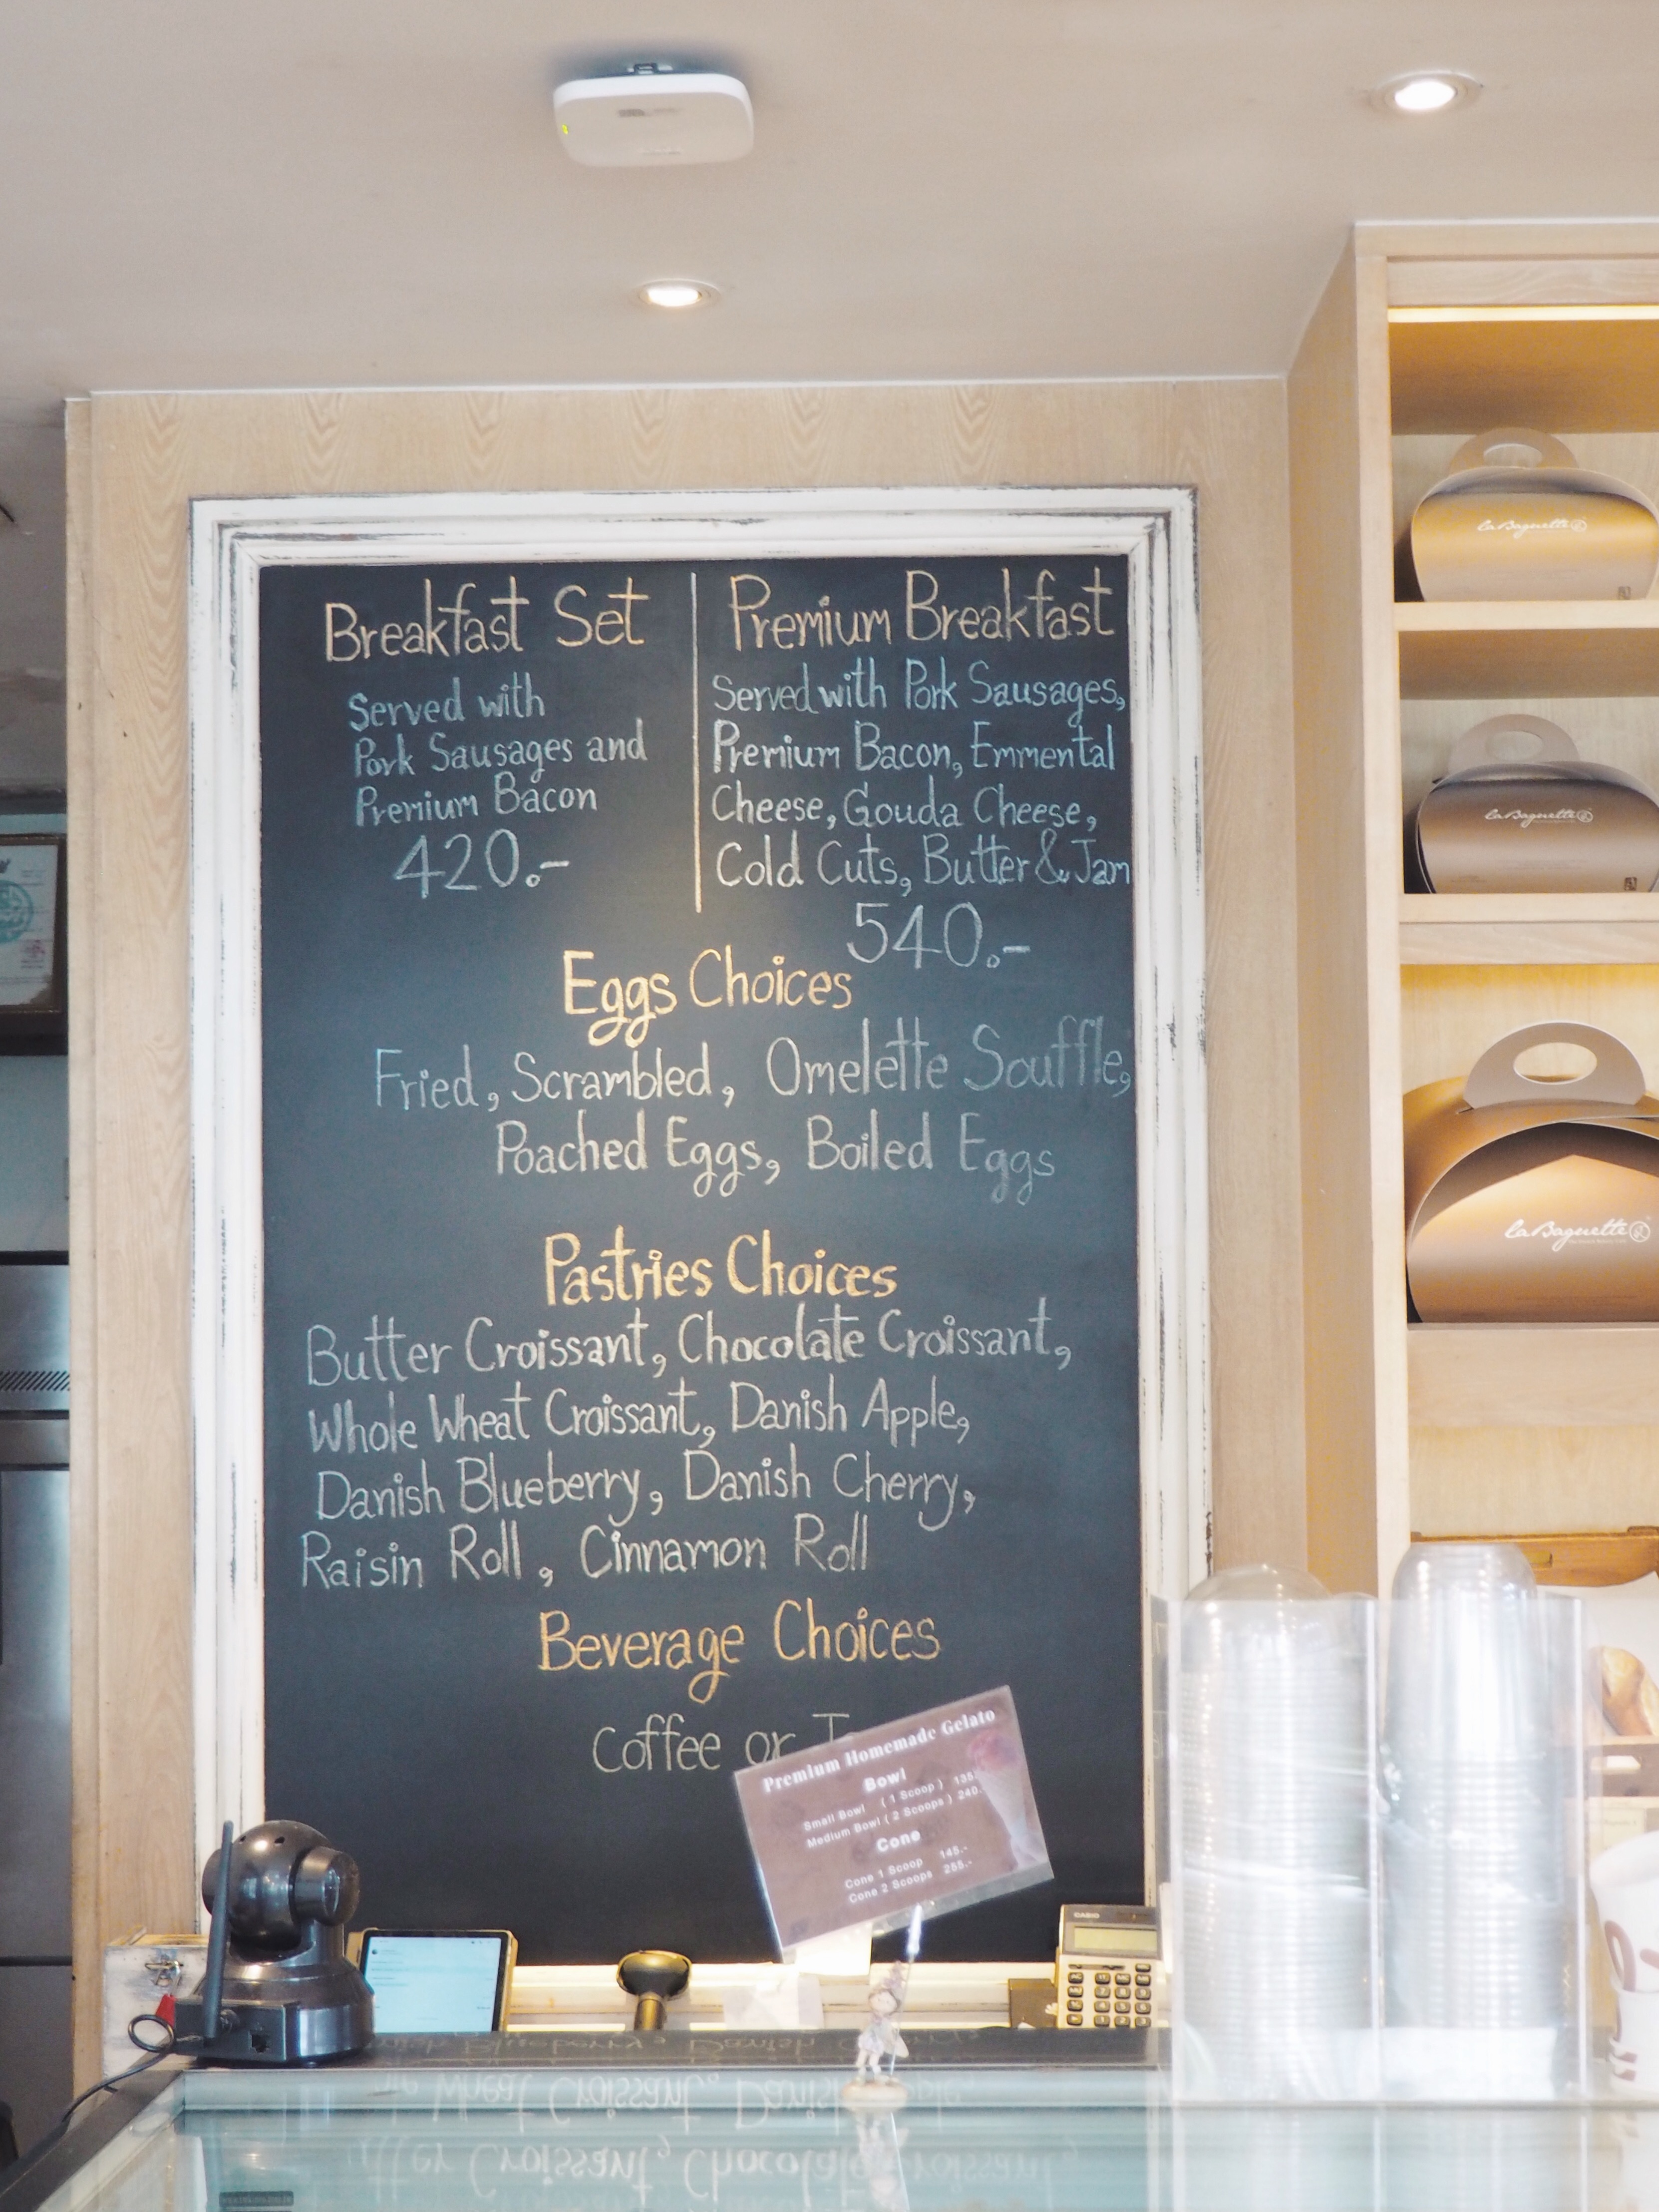 Breakfast Set
Served with
Pork Sausages and
Premium Bacon
420.-
Premium Breakfast
Served with Pork Sausages,
Premium Bacon, Emmental
Cheese, Gouda Cheese,
Cold Cuts, Butter & Jam
540.-
Eggs Choices
Fried, Scrambled, Omelette Souffle,
Poached Eggs, Boiled Eggs
Pastries Choices
Butter Croissant, Chocolate Croissant,
Whole Wheat Croissant, Danish Apple,
Danish Blueberry, Danish Cherry,
Raisin Roll, Cinnamon Roll
Beverage Choices
Coffee or
Premium Homemade Gelato
Bowl
Small Bowl ( 1 Scoop ) 135.-
Medium Bowl ( 2 Scoops ) 240.-
Cone
Cone 1 Scoop 145.-
Cone 2 Scoops 255.-
la Baguette
la Baguette
la Baguette
CASIO